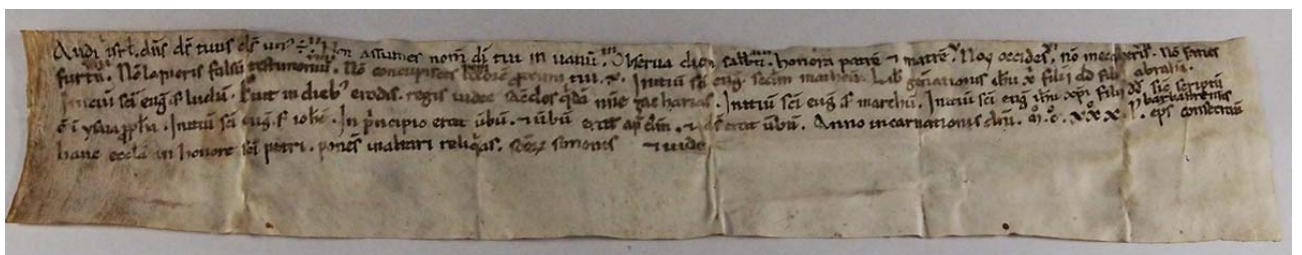 Audi isrl. dns ds tuus ds unus ÷. Non assumes nom di tui in uanu. Obserua diem sabbti. honora patre et matre. Non occides. no mecaberis. No facies
furtu. No loqueris falsu testimoniu. No concupisces proximi tui. x. Initiu sci eug. scdm matheu. Lib generationis ihu x filii dd filii abraha.
Iniciu sci eug s lucham. Fuit in dieb erodis. regis iudee sacdos qda nne zacharias. Initiu sci eug s marchu. Iniciu sci eug ihu xpi filii dd. sic scriptu
e i ysaia ppha. Initiu sci eug s iohe. In principio erat ubu. et ubu erat ap dm. et ds erat ubu. Anno incarnationis dni. M. C. xxx. eps consecraui
hanc eccla in honore sci petri. ponens in altari reliqas. simonis et iude